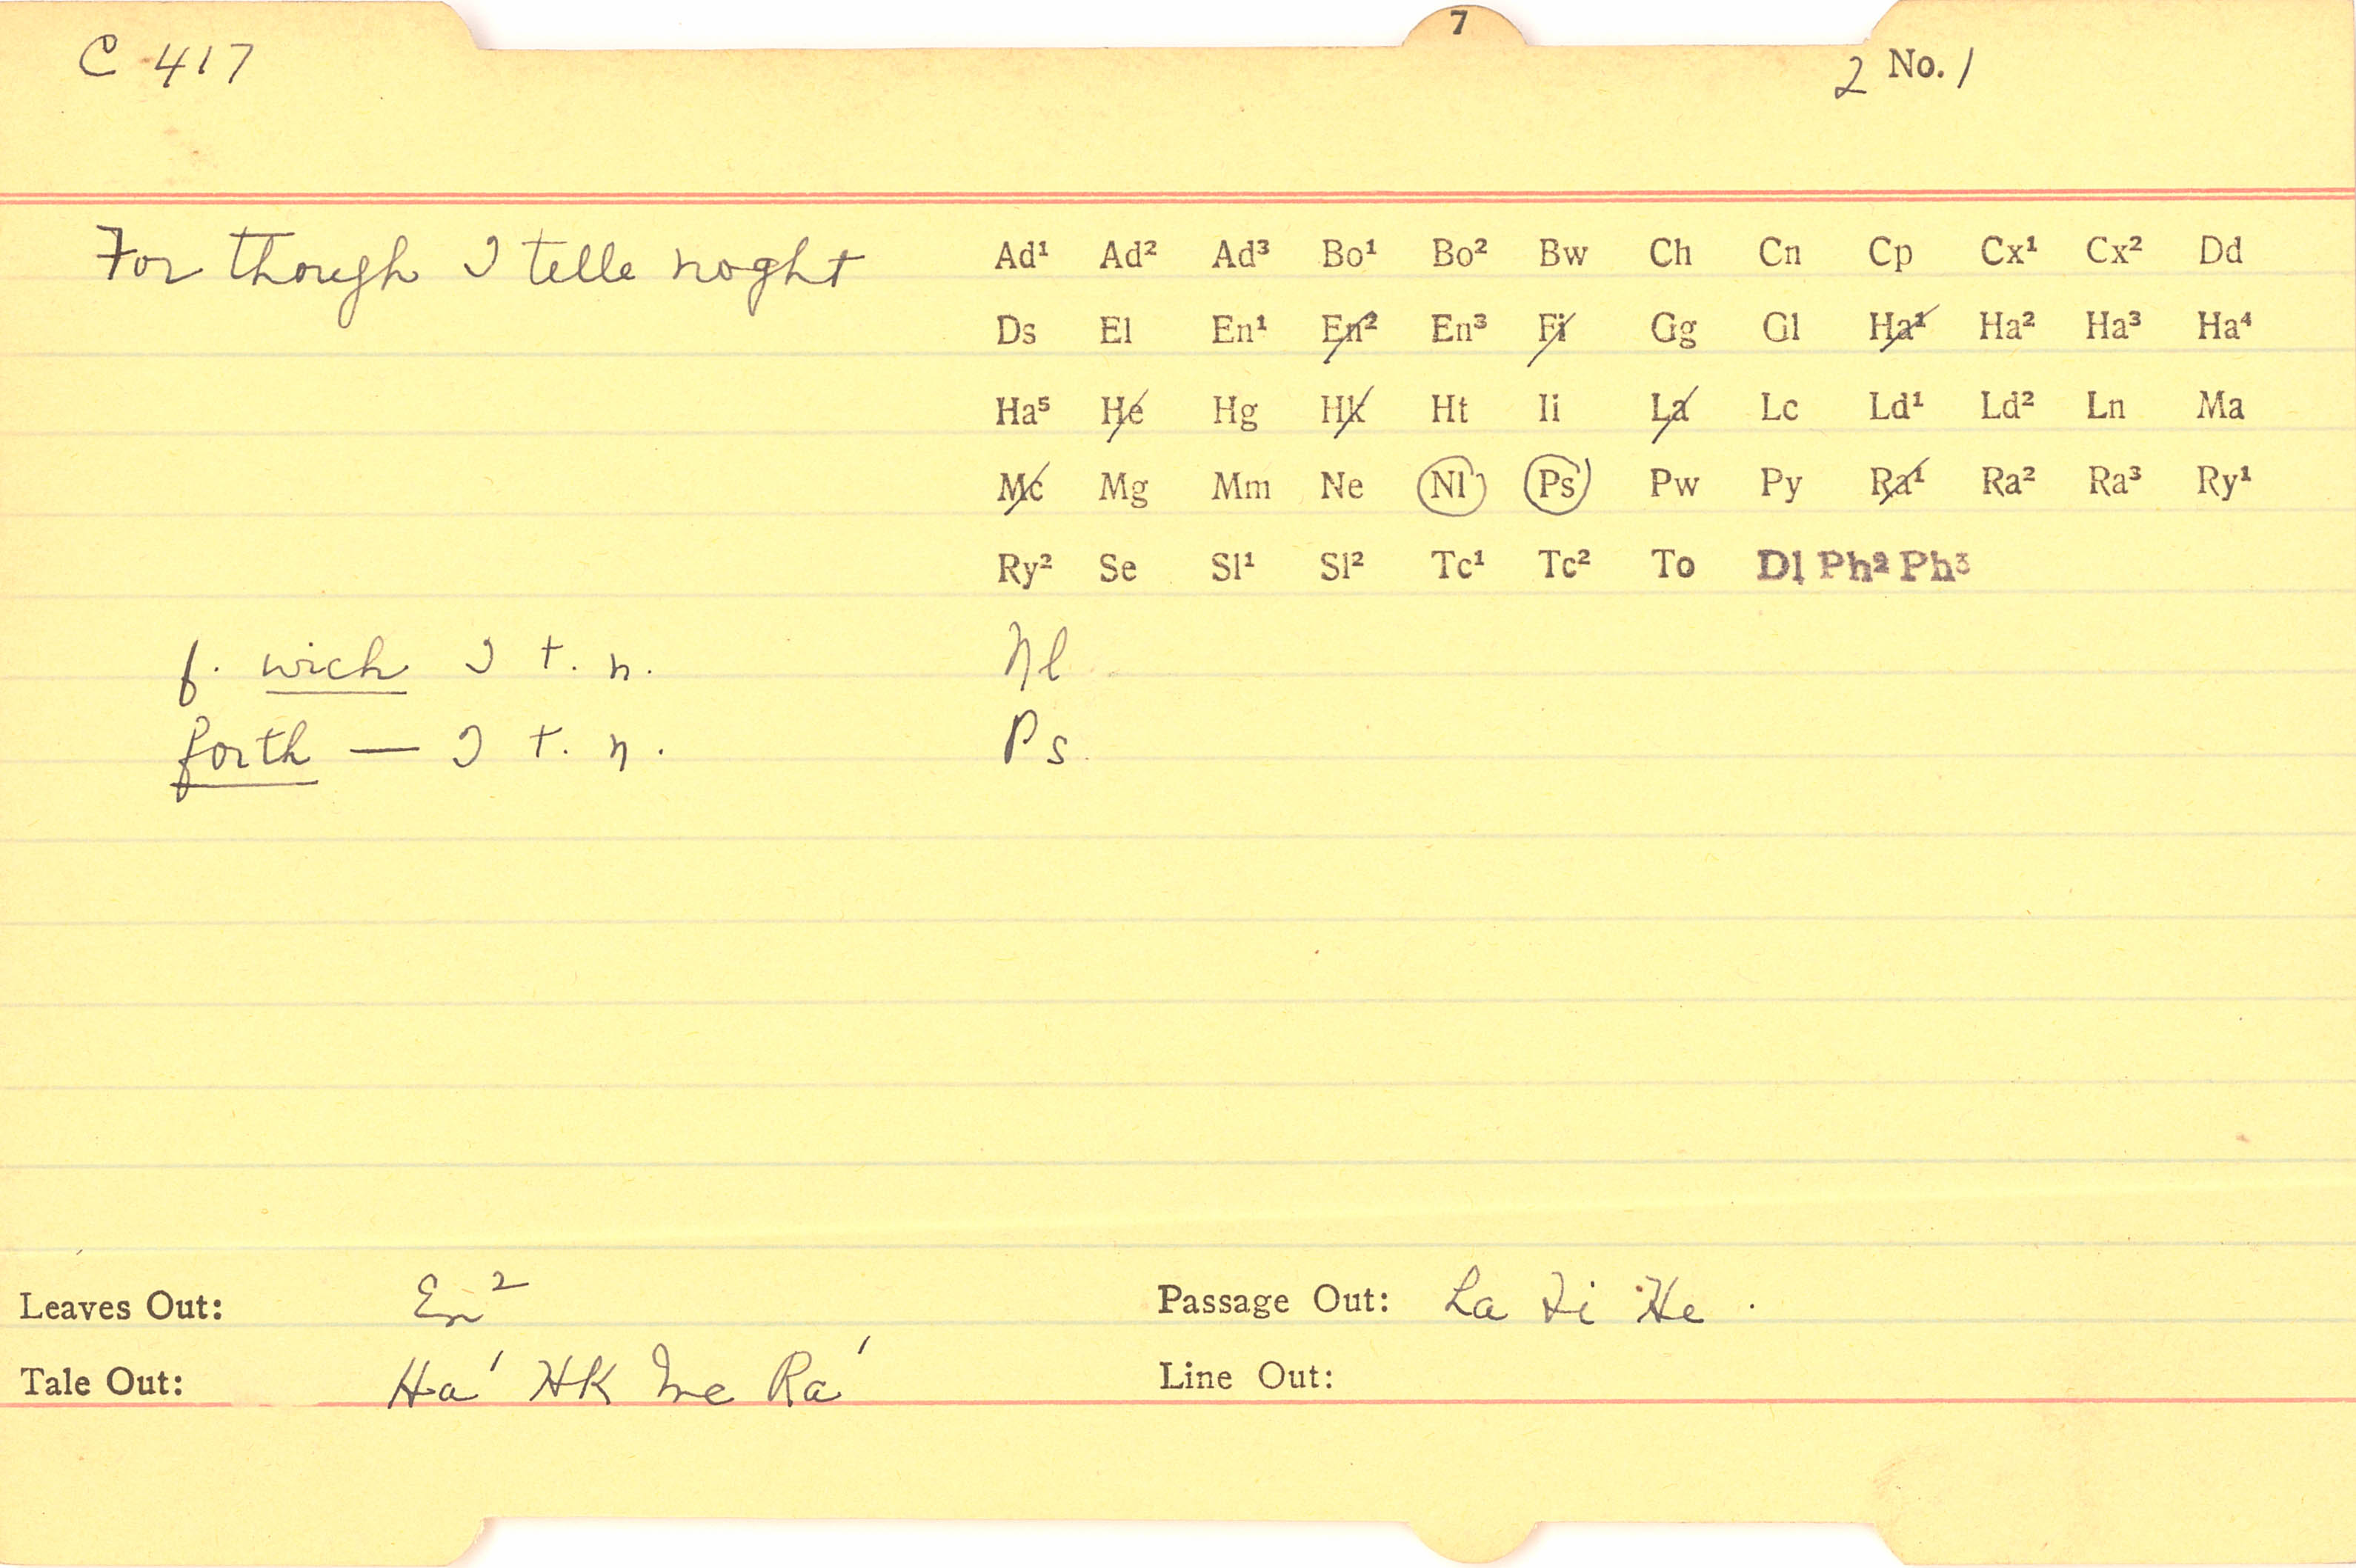 7
C 417 2 No. 1
For though I telle noght
Ad¹ Ad² Ad³ Bo¹ Bo² Bw Ch Cn Cp Cx¹ Cx² Dd
Ds El En¹ En² En³ Fi Gg Gl Ha¹ Ha² Ha³ Ha⁴
Ha⁵ He Hg Hk Ht Ii La Lc Ld¹ Ld² Ln Ma
Mc Mg Mm Ne Nl Ps Pw Py Ra¹ Ra² Ra³ Ry¹
Ry² Se Sl¹ Sl² Tc¹ Tc² To Dl Ph² Ph³
f. wich I t. n. Nl
forth — I t. n. Ps
Leaves Out: En² Passage Out: La Fi He .
Tale Out: Ha¹ HK Mc Ra¹ Line Out: